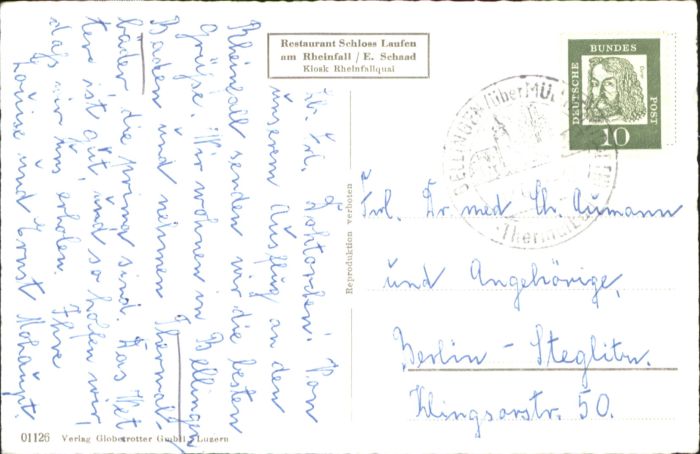 Restaurant Schloss Laufen
am Rheinfall / E. Schaad
Kiosk Rheinfallquai
Lb. Frl. Doktorchen! Von
unserem Ausflug an den
Rheinfall senden wir die besten
Grüße. Wir wohnen in Bellingen
Baden und nehmen Thermal-
bäder die prima sind. Das Wet
tere ist gut, und so hoffen wir,
daß wir uns erholen. Ihre
Louise und Ernst Mohaupt.
Reproduktion verboten
DEUTSCHE BUNDES POST
10
über MÜ
Therm
Frl. Dr. med Ch. Aumann
und Angehörige,
Berlin - Steglitz.
Klingsorstr. 50.
01126 Verlag Globetrotter GmbH., Luzern